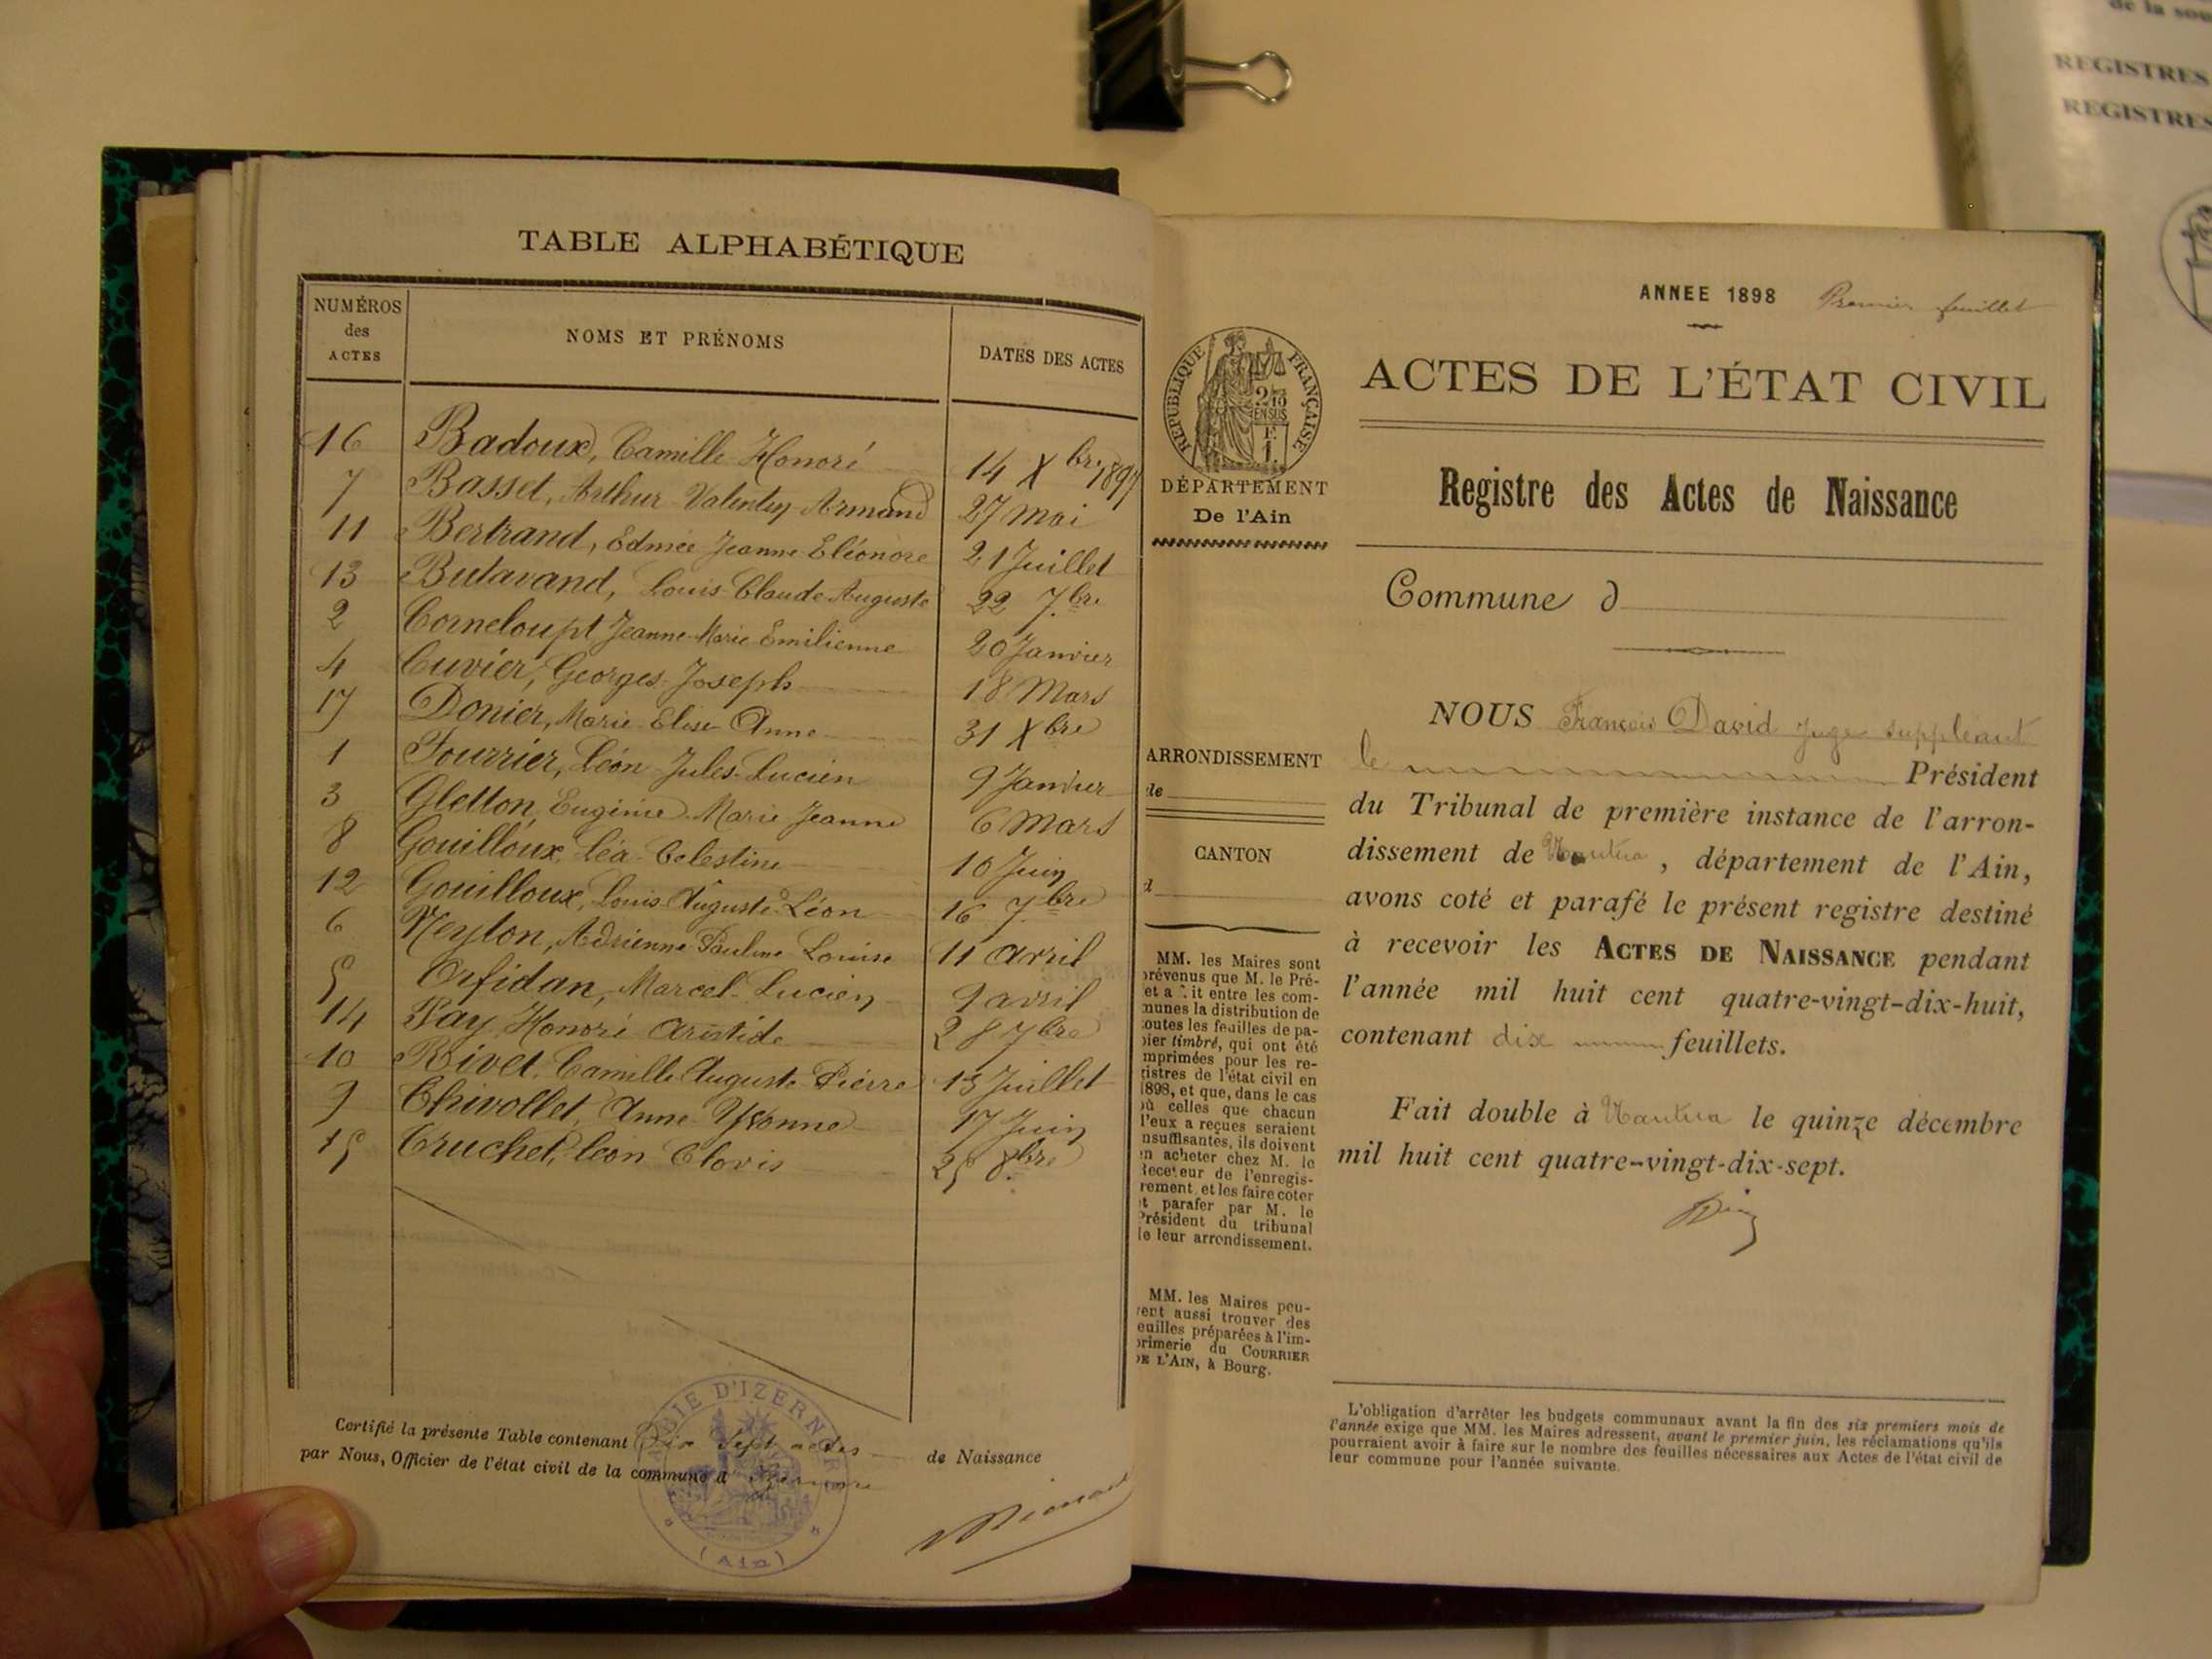 de la sou
REGISTRES
REGISTRES
TABLE ALPHABÉTIQUE
NUMÉROS
des
ACTES
NOMS ET PRÉNOMS
DATES DES ACTES
16 Badoux, Camille Honoré 14 Xbre 1897
7 Basset, Arthur Valentin Armand 27 mai
11 Bertrand, Edmée Jeanne Eléonore 21 Juillet
13 Butavand, Louis Claude Auguste 22 7bre
2 Corneloupt Jeanne Marie Emilienne 20 Janvier
4 Cuvier, Georges Joseph 18 Mars
17 Donier, Marie Elise Anne 31 Xbre
1 Fourrier, Léon Jules Lucien 9 Janvier
3 Gletton, Eugénie Marie Jeanne 6 Mars
8 Gouilloux, Léa Celestine 10 Juin
12 Gouilloux, Louis Auguste Léon 16 7bre
6 Neyton, Adrienne Pauline Louise 11 avril
5 Orfidan, Marcel Lucien 9 avril
14 Pay, Honoré Aristide 28 7bre
10 Rivet, Camille Auguste Pierre 13 Juillet
9 Thivollet, Anne Yvonne 17 Juin
15 Truchet, Léon Clovis 25 8bre
Certifié la présente Table contenant Dix Sept actes de Naissance
par Nous, Officier de l'état civil de la commune d'Izernore
MAIRIE D'IZERNORE
(Ain)
ANNEE 1898 Premier feuillet
RÉPUBLIQUE FRANÇAISE
2/10
EN SUS
DÉPARTEMENT
De l'Ain
ACTES DE L'ÉTAT CIVIL
Registre des Actes de Naissance
Commune d
NOUS François David Juge suppléant
le Président
du Tribunal de première instance de l'arron-
dissement de Nantua, département de l'Ain,
avons coté et parafé le présent registre destiné
à recevoir les ACTES DE NAISSANCE pendant
l'année mil huit cent quatre-vingt-dix-huit,
contenant dix feuillets.
Fait double à Nantua le quinze décembre
mil huit cent quatre-vingt-dix-sept.
ARRONDISSEMENT
de
CANTON
d
MM. les Maires sont
prévenus que M. le Pré-
et a it entre les com-
munes la distribution de
toutes les feuilles de pa-
pier timbré, qui ont été
imprimées pour les re-
gistres de l'état civil en
1898, et que, dans le cas
où celles que chacun
d'eux a reçues seraient
insuffisantes, ils doivent
en acheter chez M. le
Receveur de l'enregis-
trement et les faire coter
et parafer par M. le
Président du tribunal
de leur arrondissement.
MM. les Maires peu-
vent aussi trouver des
feuilles préparées à l'im-
primerie du COURRIER
DE L'AIN, à Bourg.
L'obligation d'arrêter les budgets communaux avant la fin des six premiers mois de
l'année exige que MM. les Maires adressent, avant le premier juin, les réclamations qu'ils
pourraient avoir à faire sur le nombre des feuilles nécessaires aux Actes de l'état civil de
leur commune pour l'année suivante.